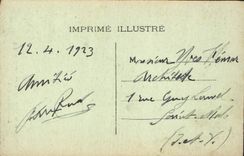 IMPRIMÉ ILLUSTRÉ
12.4.1923
Amitiés
Monsieur Yves Hémar
Architecte
1 rue
Saint-Malo
(I.-et-V.)